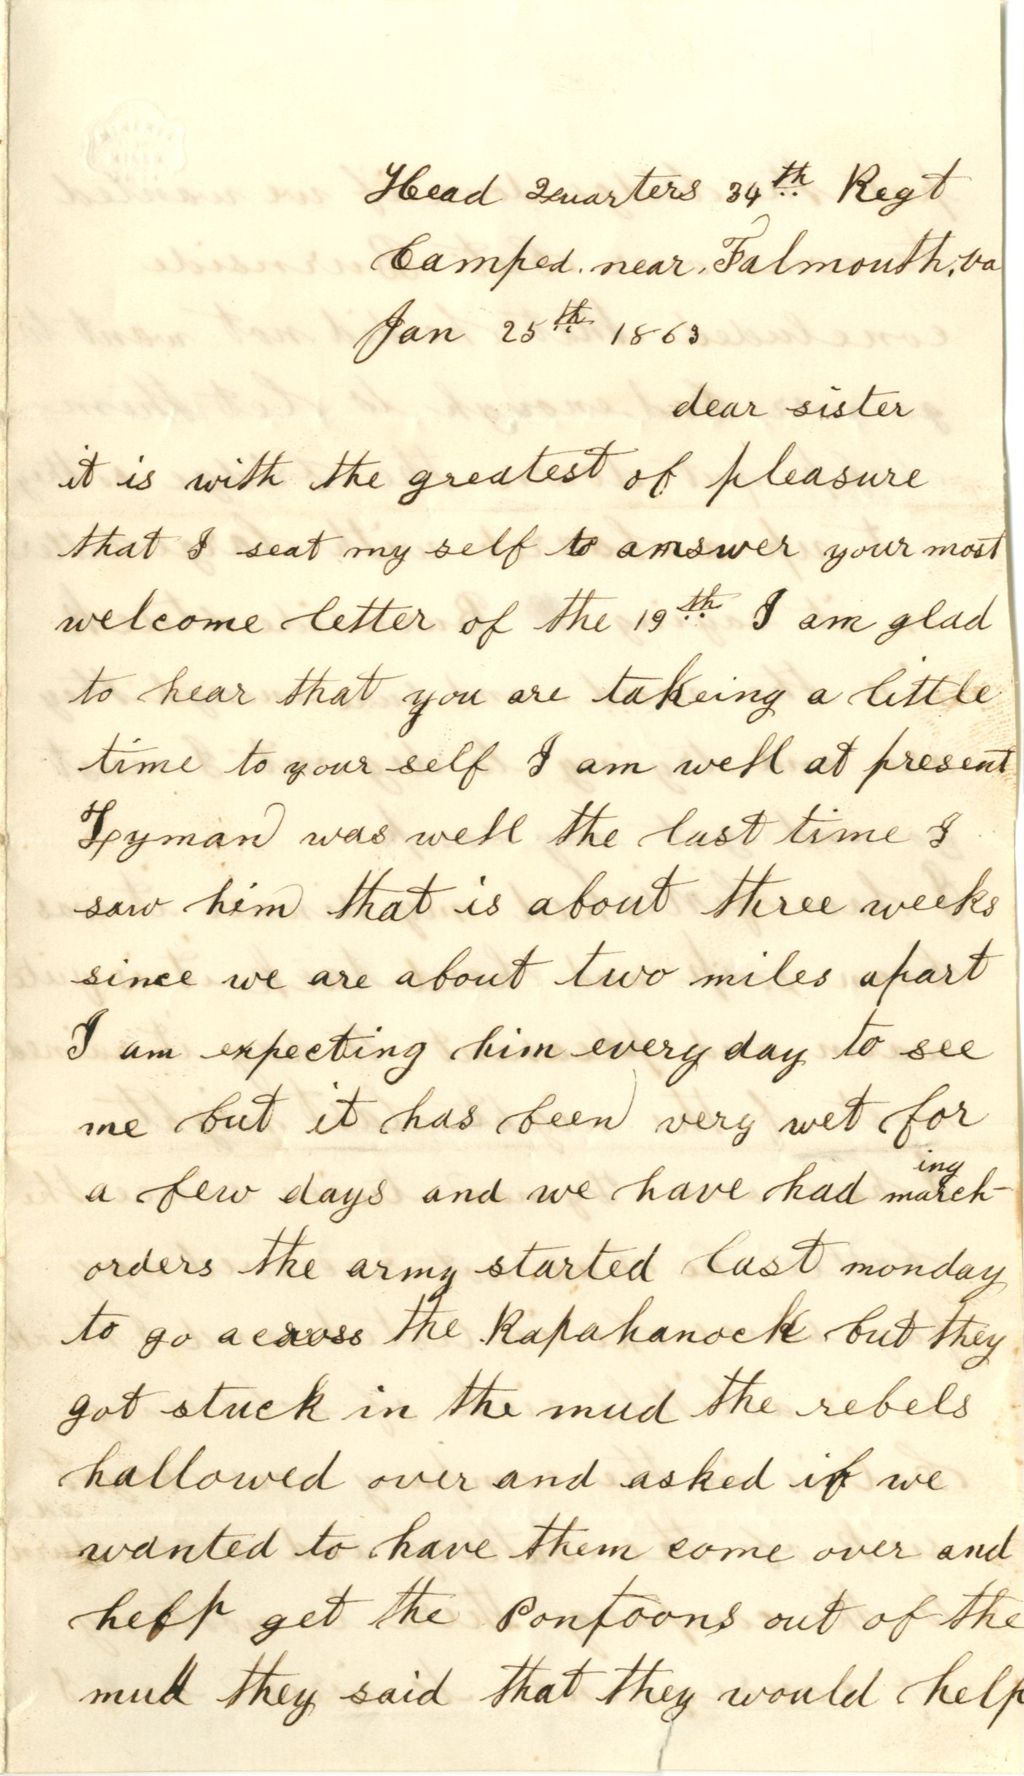 Head Quarters 34th Regt
Camped. near. Falmouth. Va
Jan 25th 1863
dear sister
it is with the greatest of pleasure
that I seat my self to answer your most
welcome letter of the 19th I am glad
to hear that you are takeing a little
time to your self I am well at present
Lyman was well the last time I
saw him that is about three weeks
since we are about two miles apart
I am expecting him every day to see
me but it has been very wet for
a few days and we have had marching
orders the army started last monday
to go across the Rapahanock but they
got stuck in the mud the rebels
hallowed over and asked if we
wanted to have them come over and
help get the Pontoons out of the
mud they said that they would help